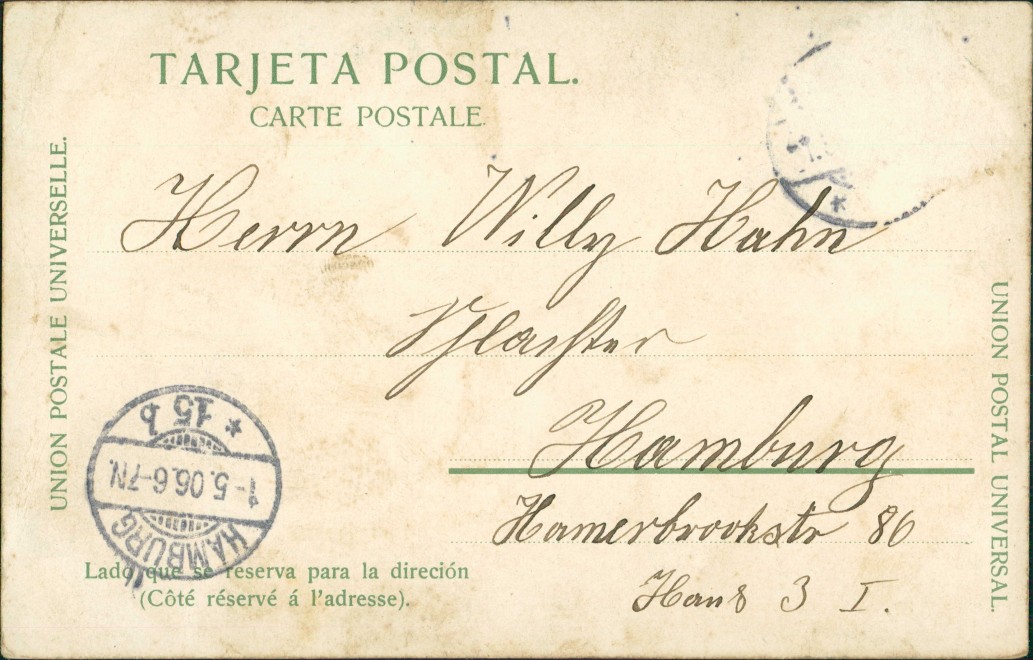 TARJETA POSTAL.
CARTE POSTALE.
UNION POSTALE UNIVERSELLE.
UNION POSTAL UNIVERSAL.
Herrn Willy Hahn
Schlachter
Hamburg
Hamerbrookstr 86
Haus 3 I.
* 15 b
1-5.06.6-7N.
HAMBURG
Lado que se reserva para la direción
(Côté réservé á l'adresse).